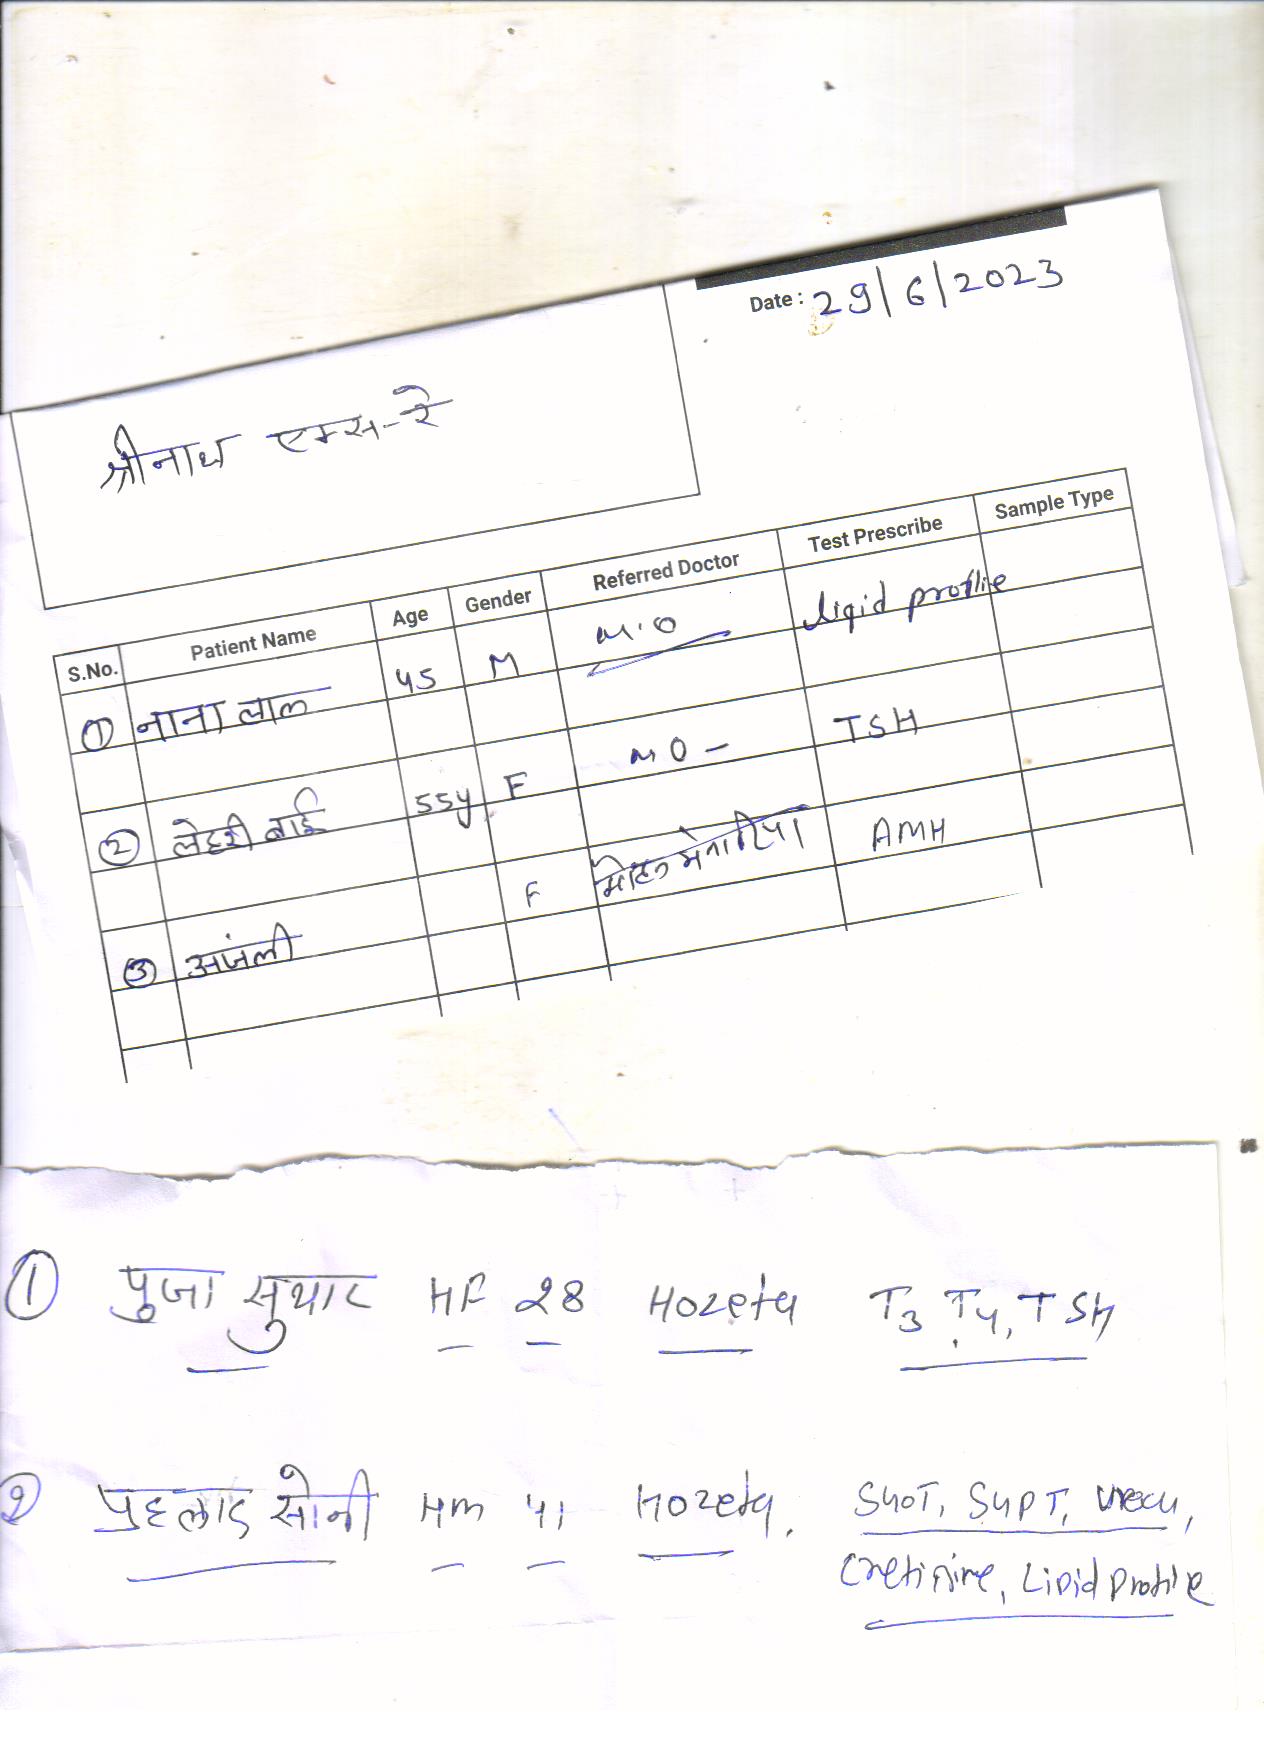 Date : 29/6/2023
श्रीनाथ एक्स-रे
S.No. Patient Name Age Gender Referred Doctor Test Prescribe Sample Type
① नाना लाल 45 M M.O Liqid profile
② लेहरी बाई 55y F MO - TSH
③ अंजली F मोहन मेनारिया AMH
① पुजा सुथार HF 28 Hozeta T3 T4, TSH
2 प्रहलाद सोनी HM 41 Hozeta, SGOT, SGPT, Urea,
Cretinine, Lipid Profile